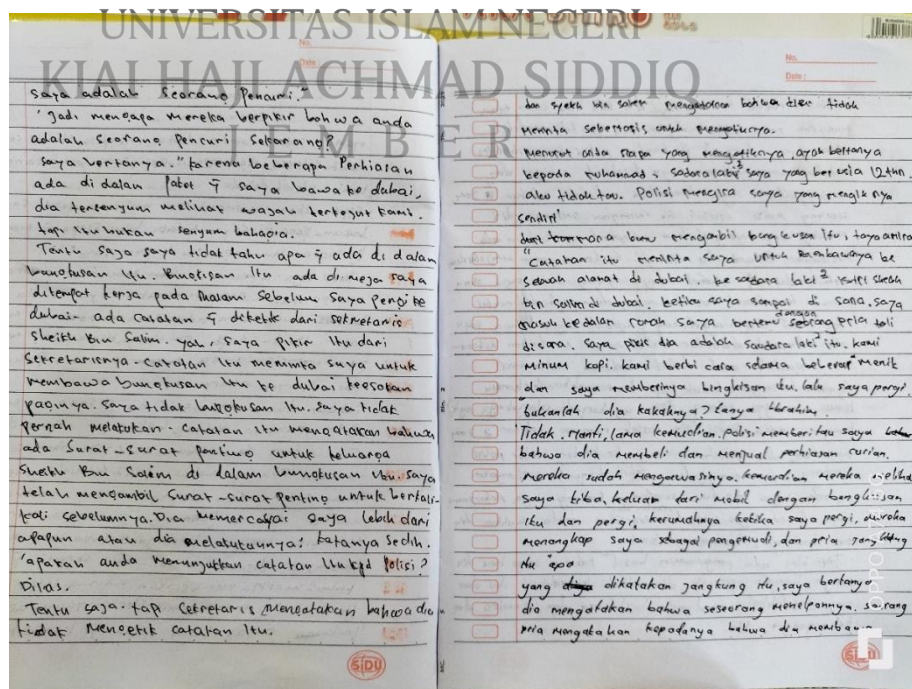 UNIVERSITAS ISLAM NEGERI
KIAI HAJI ACHMAD SIDDIQ
JEMBER
No.
Date :
saya adalah seorang Pencuri."
"Jadi mengapa mereka berpikir bahwa anda
adalah seorang pencuri sekarang?
saya bertanya. "karena beberapa Perhiasan
ada di dalam Paket yg saya bawa ke dubai,
dia tersenyum melihat wajah terkejut kami.
tapi itu bukan senyum bahagia.
Tentu saja saya tidak tahu apa yg ada di dalam
bungkusan itu. Bungkisan Itu ada di meja saya
ditempat kerja pada malam sebelum saya pergi ke
dubai- ada catatan yg diketik dari sekretaris
Sheikh Bin Salim. yah, saya pikir Itu dari
sekretarisnya - catatan Itu meminta saya untuk
membawa bungkusan Itu ke dubai keesokan
paginya. saya tidak bungkusan Itu. saya tidak
pernah melakukan - catatan Itu mengatakan bahwa
ada Surat-surat penting untuk keluarga
Sheikh Bin Salem di dalam bungkusan Itu. saya
telah mengambil Surat-surat penting untuk berkali-
kali sebelumnya. Dia memercayai saya lebih dari
apapun atau dia melakukannya: katanya sedih.
"apakah anda menunjukkan catatan Itu kpd Polisi?
Dilas.
Tentu saja. tapi Cekretaris mengatakan bahwa dia
tidak mengetik catatan Itu.
SIDU
No.
Date :
dan syekh bin salem mengatakan bahwa dia tidak
meminta sekertasis untuk mengetiknya.
Menurut anda siapa yang mengetiknya, ayah bertanya
kepada muhannad, sadara laki² saya yang berusia 12thn.
aku tidak tau. Polisi mengira saya yang mengik nya
sendiri
mana kamu mengambil bangkusan itu, taya amira
"Catatan itu meminta saya untuk membawanya ke
sebuah alamat di dubai. ke saudara laki² sheikh
bin salim di dubai. ketika saya sampai di sana, saya
masuk kedalan romah saya bertemu dengan seorang pria
disana. saya pikir dia adalah saudara laki² itu. kami
minum kopi. kami berbi cara selama beberapa menit
dan saya memberinya bingkisan itu. lalu saya pergi.
bukanlah dia kakaknya? tanya Ibrahim.
Tidak. nanti, lama kemudian. polisi memberi tau saya
bahwa dia membeli dan menjual perhiasan curian.
mereka sudah mengawasinya. kemudian mereka melihat
saya tiba, keluar dari mobil dengan bangkisan
itu dan pergi, kerumahnya ketika saya pergi, mereka
menangkap saya sebagai pengemudi, dan pria jangkung
itu apa
yang dikatakan jangkung itu, saya bertanya
dia mengatakan bahwa seseorang menelponnya. seorang
pria mengatakan kepadanya bahwa dia membawa